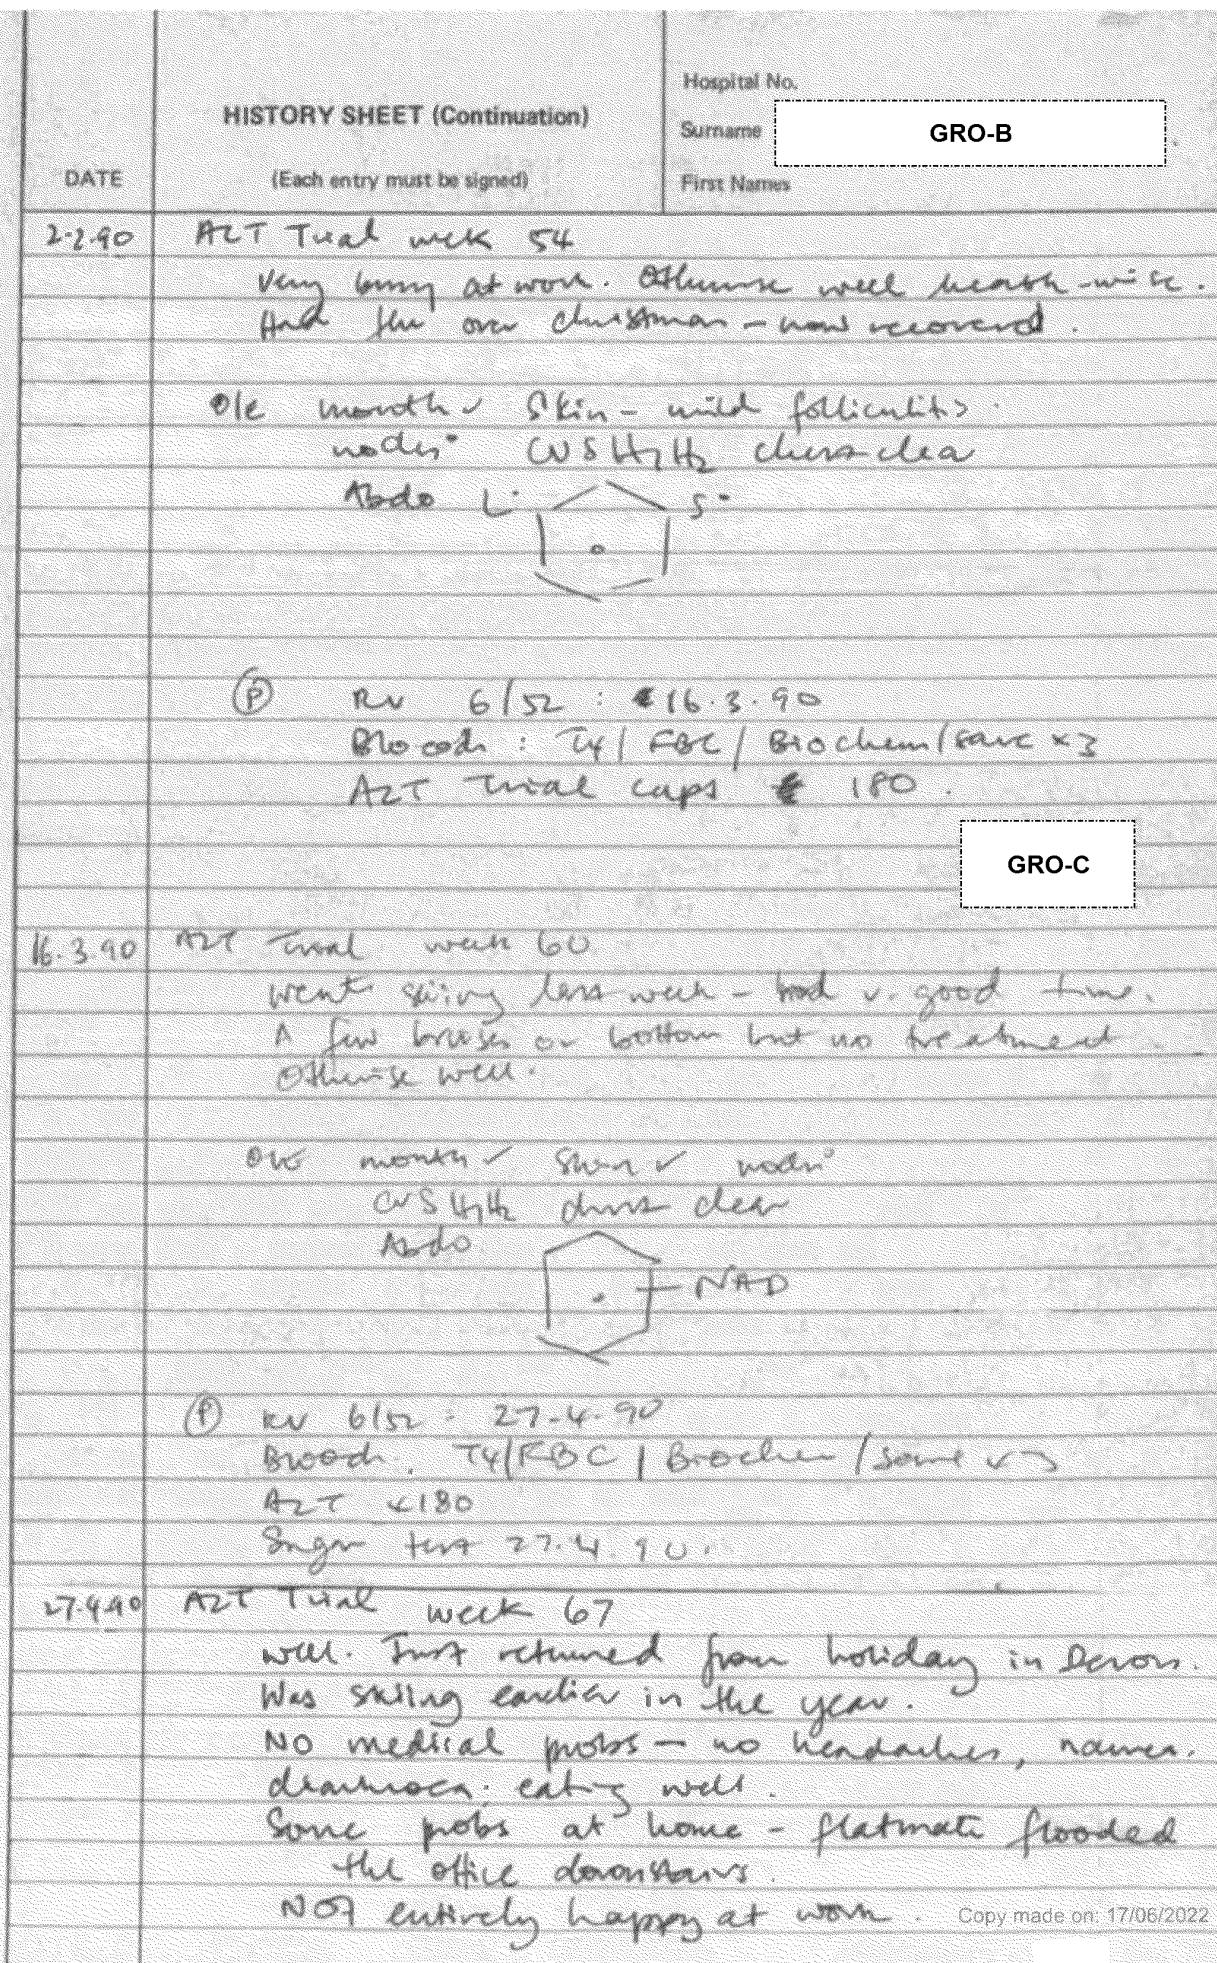 Hospital No.
HISTORY SHEET (Continuation)
Surname GRO-B
DATE (Each entry must be signed) First Names
2-2-90 AZT Trial week 54
Very busy at work. Otherwise well health-wise.
Had flu over Christmas - now recovered.
O/E mouth ✓ Skin - mild folliculitis.
nodes° CVS H1H2 chest clear
Abdo L° S°
(P) Rv 6/52 : 16.3.90
Bloods : T4 / FBC / Biochem / save x3
AZT Trial caps 180.
GRO-C
16.3.90 AZT Trial week 60.
went skiing last week - had v. good time.
A few bruises on bottom but no treatment.
Otherwise well.
O/E mouth ✓ Skin ✓ nodes°
CVS H1H2 chest clear
Abdo
NAD
(P) RV 6/52 : 27-4-90
Bloods. T4/FBC / Biochem / save x3
AZT x180
Sugar test 27.4.90.
27.4.90 AZT Trial week 67
well. Just returned from holiday in Devon.
Was skiing earlier in the year.
NO medical probs - no headaches, nausea.
diarrhoea; eating well.
Some probs at home - flatmate flooded
the office downstairs.
NOT entirely happy at work.
Copy made on: 17/06/2022